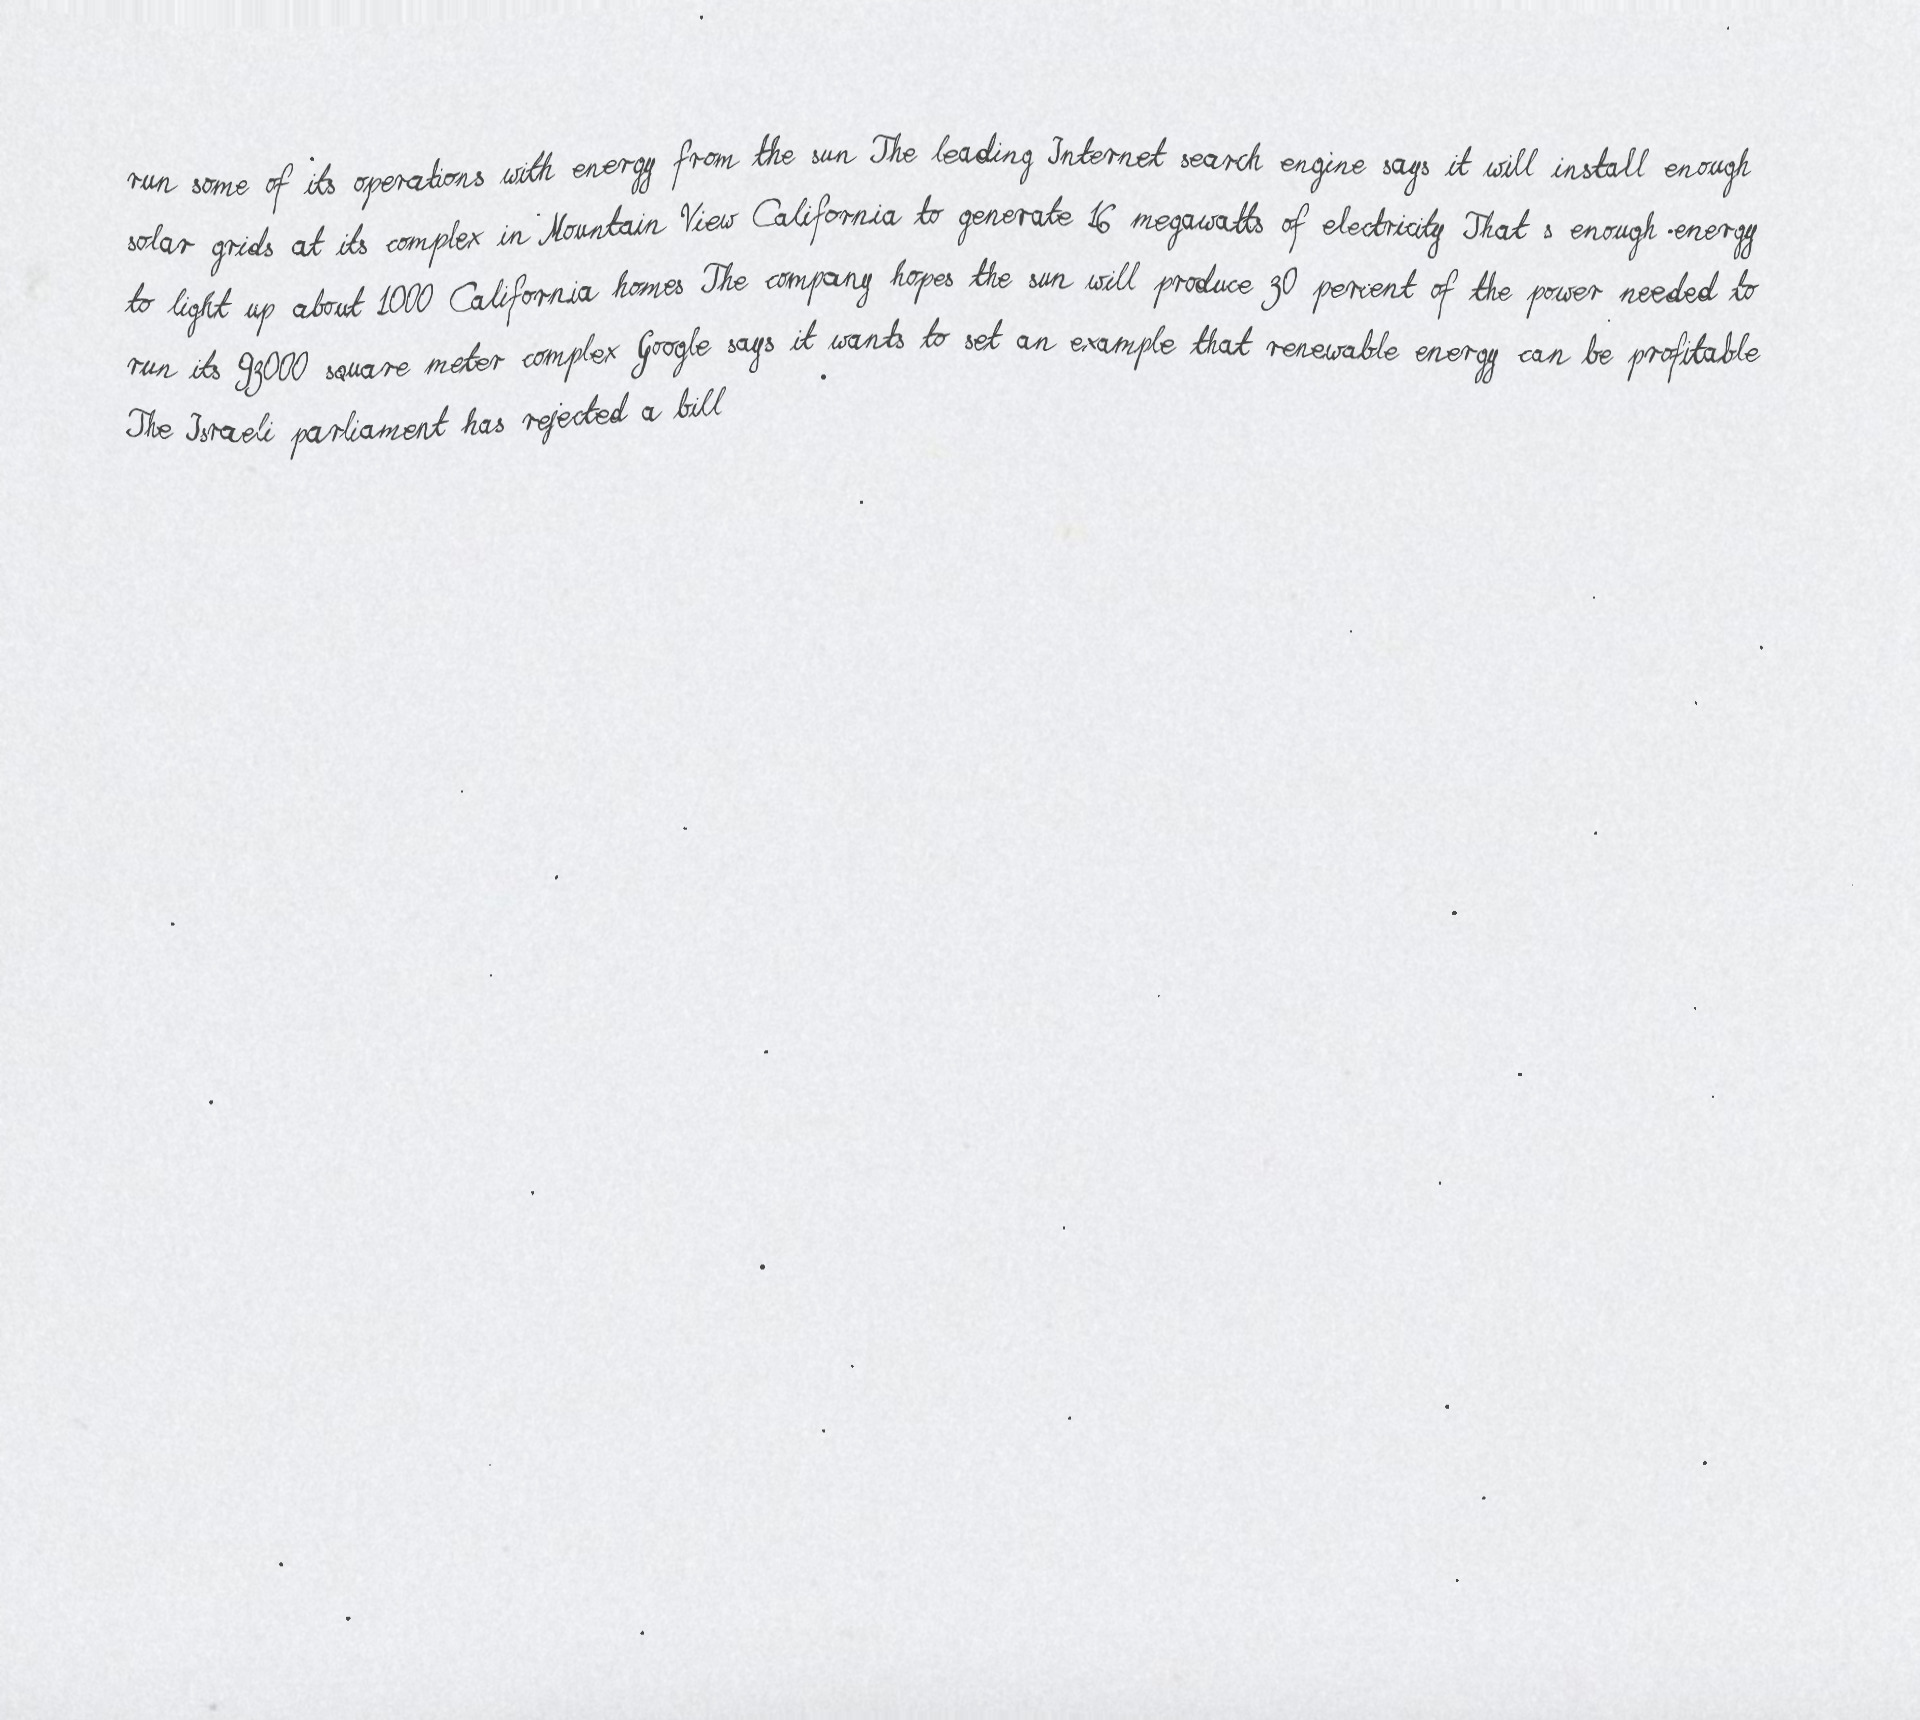 run some of its operations with energy from the sun The leading Internet search engine says it will install enough
solar grids at its complex in Mountain View California to generate 16 megawatts of electricity That s enough energy
to light up about 1000 California homes The company hopes the sun will produce 30 percent of the power needed to
run its 93000 square meter complex Google says it wants to set an example that renewable energy can be profitable
The Israeli parliament has rejected a bill